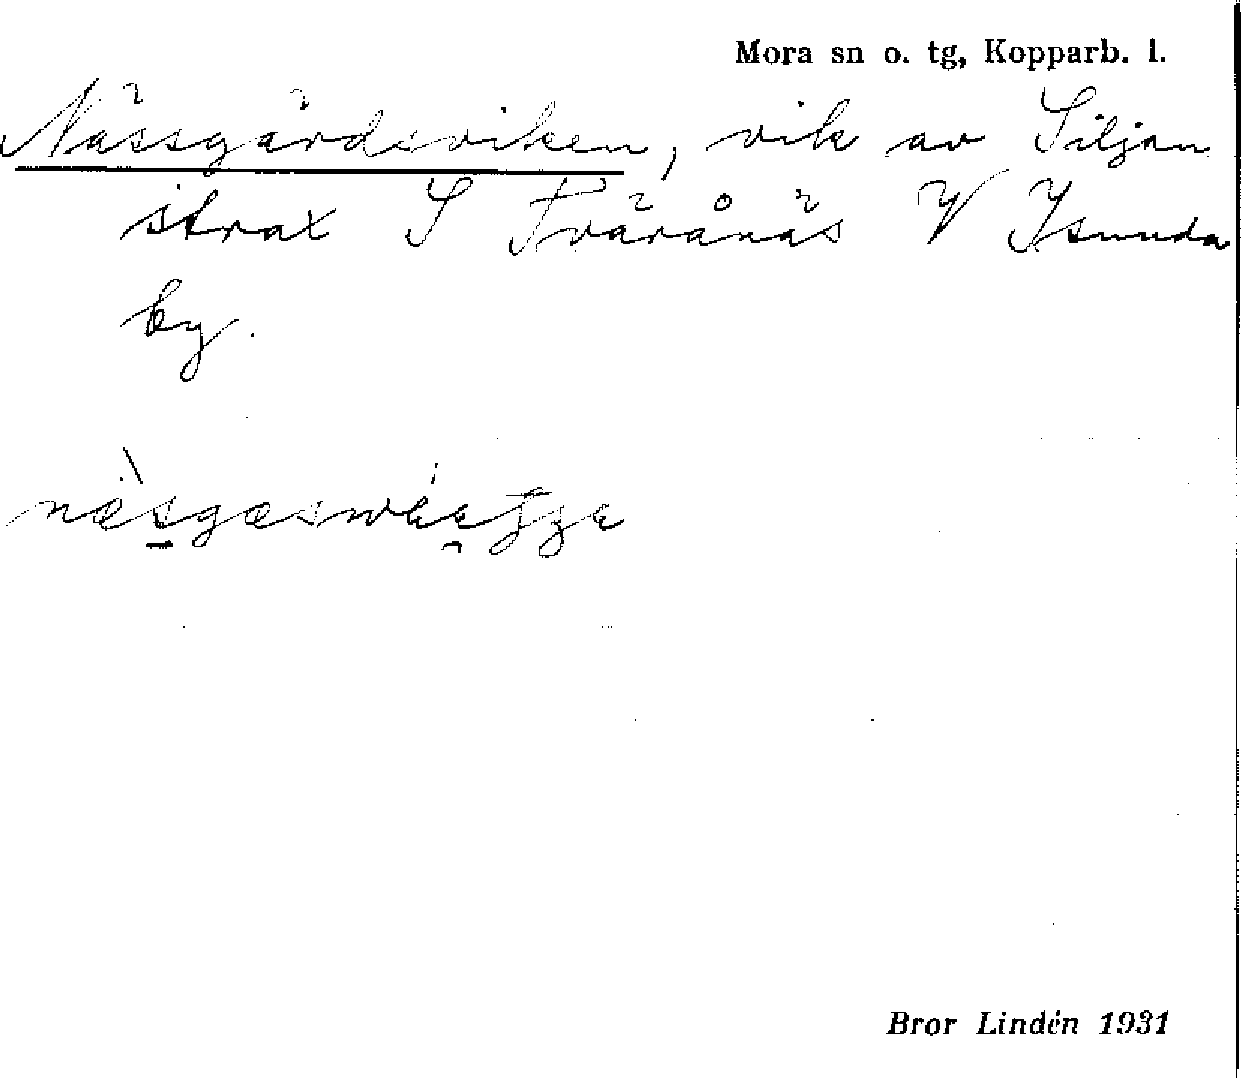 Mora sn o. tg, Kopparb. l.
Nässgärdsviken, vik av Siljan
strax S Tväränäs V Isunda
by.
Bror Lindén 1931